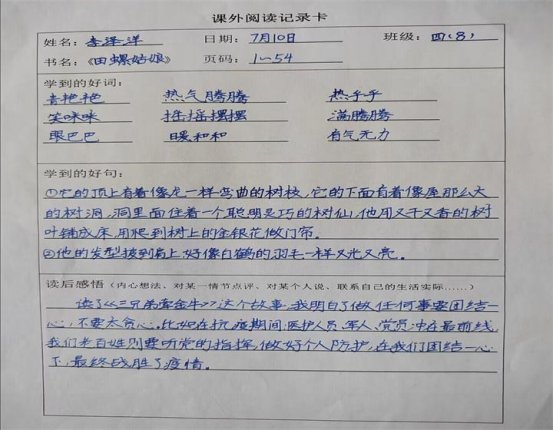 课外阅读记录卡
姓名：李泽洋 日期：7月10日 班级：四(8)
书名：《田螺姑娘》 页码：1～54
学到的好词：
香艳艳 热气腾腾 热乎乎
笑咪咪 摇摇摆摆 满腾腾
眼巴巴 暖和和 有气无力
学到的好句：
①它的顶上有着像龙一样弯曲的树枝，它的下面有着像屋那么大
的树洞，洞里面住着一个聪明灵巧的树仙，他用又干又香的树
叶铺成床，用爬到树上的金银花做门帘。
②他的发型披到肩上，好像白鹤的羽毛一样又光又亮。
读后感悟（内心想法、对某一情节点评、对某个人说、联系自己的生活实际……）
读了《三兄弟牵金牛》这个故事，我明白了做任何事要团结一
心，不要太贪心，比如在抗疫期间，医护人员、军人、党员冲在最前线，
我们老百姓则要听党的指挥，做好个人防护，在我们团结一心
下，最终战胜了疫情。